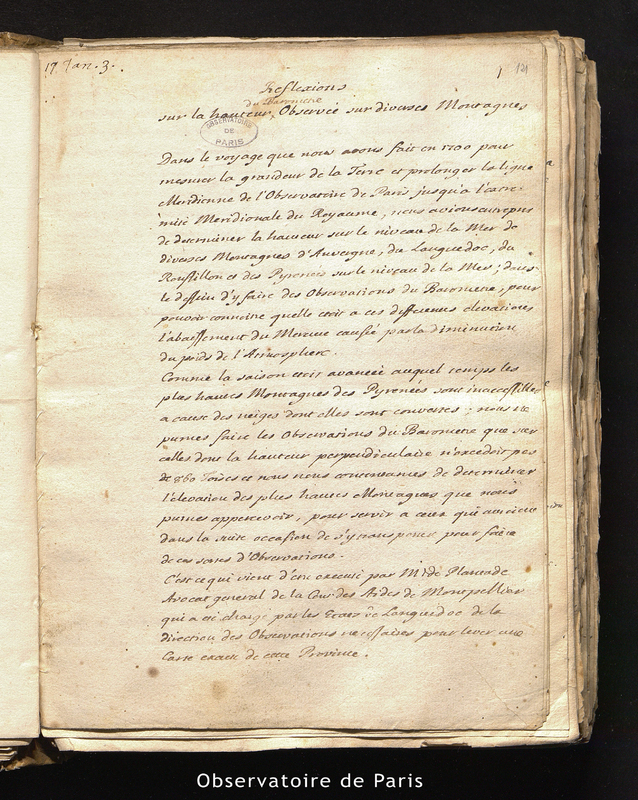 17. Jan. 3.
1 121
Reflexions
du Barometre
sur la hauteur, Observée sur diverses Montagnes
OBSERVATOIRE
DE
PARIS
Dans le voyage que nous avons fait en 1700 pour
mesurer la grandeur de la Terre et prolonger la ligne
Meridienne de l'Observatoire de Paris jusqu'a l'extre-
mité Meridionale du Royaume, nous avions entrepris
de determiner la hauteur sur le niveau de la Mer de
diverses Montagnes d'Auvergne, du Languedoc, du
Roussillon et des Pyrenées sur le niveau de la Mer; dans
le dessein d'y faire des Observations du Barometre, pour
pouvoir connoitre quelle etoit a ces differentes elevations
l'abaissement du Mercure causée par la diminution
du poids de l'Atmosphere.
Comme la saison etoit avancée auquel temps les
plus hautes Montagnes des Pyrenées sont inaccessibles
a cause des neiges dont elles sont couvertes; nous ne
pumes faire les Observations du Barometre que sur
celles dont la hauteur perpendiculaire n'excedoit pas
de 860 Toises et nous nous contentames de determiner
l'elevation des plus hautes Montagnes que nous
pumes appercevoir, pour servir a ceux qui auroient
dans la suite occasion de s'y transporter pour faire
de ces sortes d'Observations.
C'est ce qui vient d'etre executé par Mr de Plantade
Avocat general de la Cour des Aides de Montpellier
qui a eté chargé par les Etats de Languedoc de la
direction des Observations necessaires pour lever une
Carte exacte de cette Province.
Observatoire de Paris